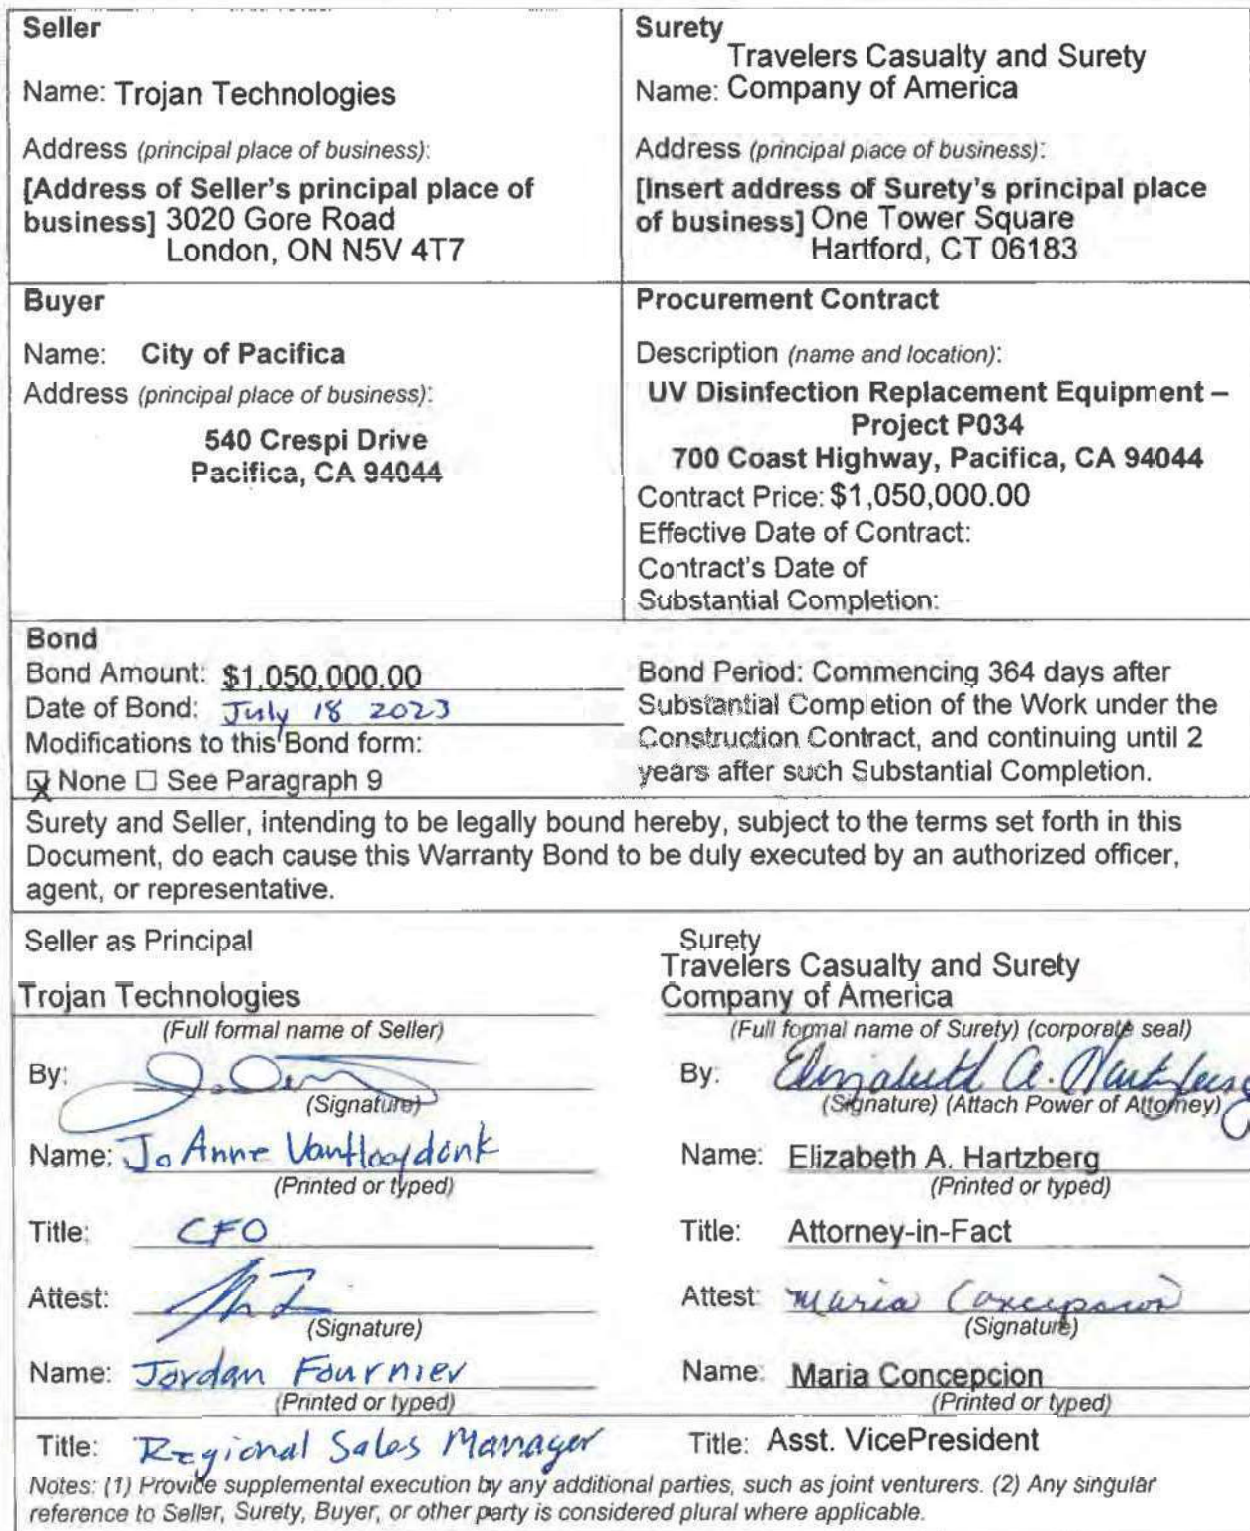 Seller
Name: Trojan Technologies
Address (principal place of business):
[Address of Seller's principal place of
business] 3020 Gore Road
London, ON N5V 4T7
Surety
Travelers Casualty and Surety
Name: Company of America
Address (principal place of business):
[Insert address of Surety's principal place
of business] One Tower Square
Hartford, CT 06183
Buyer
Name: City of Pacifica
Address (principal place of business):
540 Crespi Drive
Pacifica, CA 94044
Procurement Contract
Description (name and location):
UV Disinfection Replacement Equipment –
Project P034
700 Coast Highway, Pacifica, CA 94044
Contract Price: $1,050,000.00
Effective Date of Contract:
Contract's Date of
Substantial Completion:
Bond
Bond Amount: $1,050,000.00
Date of Bond: July 18 2023
Modifications to this Bond form:
☒ None ☐ See Paragraph 9
Bond Period: Commencing 364 days after
Substantial Completion of the Work under the
Construction Contract, and continuing until 2
years after such Substantial Completion.
Surety and Seller, intending to be legally bound hereby, subject to the terms set forth in this
Document, do each cause this Warranty Bond to be duly executed by an authorized officer,
agent, or representative.
Seller as Principal
Trojan Technologies
(Full formal name of Seller)
By:
(Signature)
Name: Jo Anne VanHooydonk
(Printed or typed)
Title: CFO
Attest:
(Signature)
Name: Jordan Fournier
(Printed or typed)
Title: Regional Sales Manager
Surety
Travelers Casualty and Surety
Company of America
(Full formal name of Surety) (corporate seal)
By: Elizabeth A. Hartzberg
(Signature) (Attach Power of Attorney)
Name: Elizabeth A. Hartzberg
(Printed or typed)
Title: Attorney-in-Fact
Attest: Maria Concepcion
(Signature)
Name: Maria Concepcion
(Printed or typed)
Title: Asst. VicePresident
Notes: (1) Provide supplemental execution by any additional parties, such as joint venturers. (2) Any singular
reference to Seller, Surety, Buyer, or other party is considered plural where applicable.